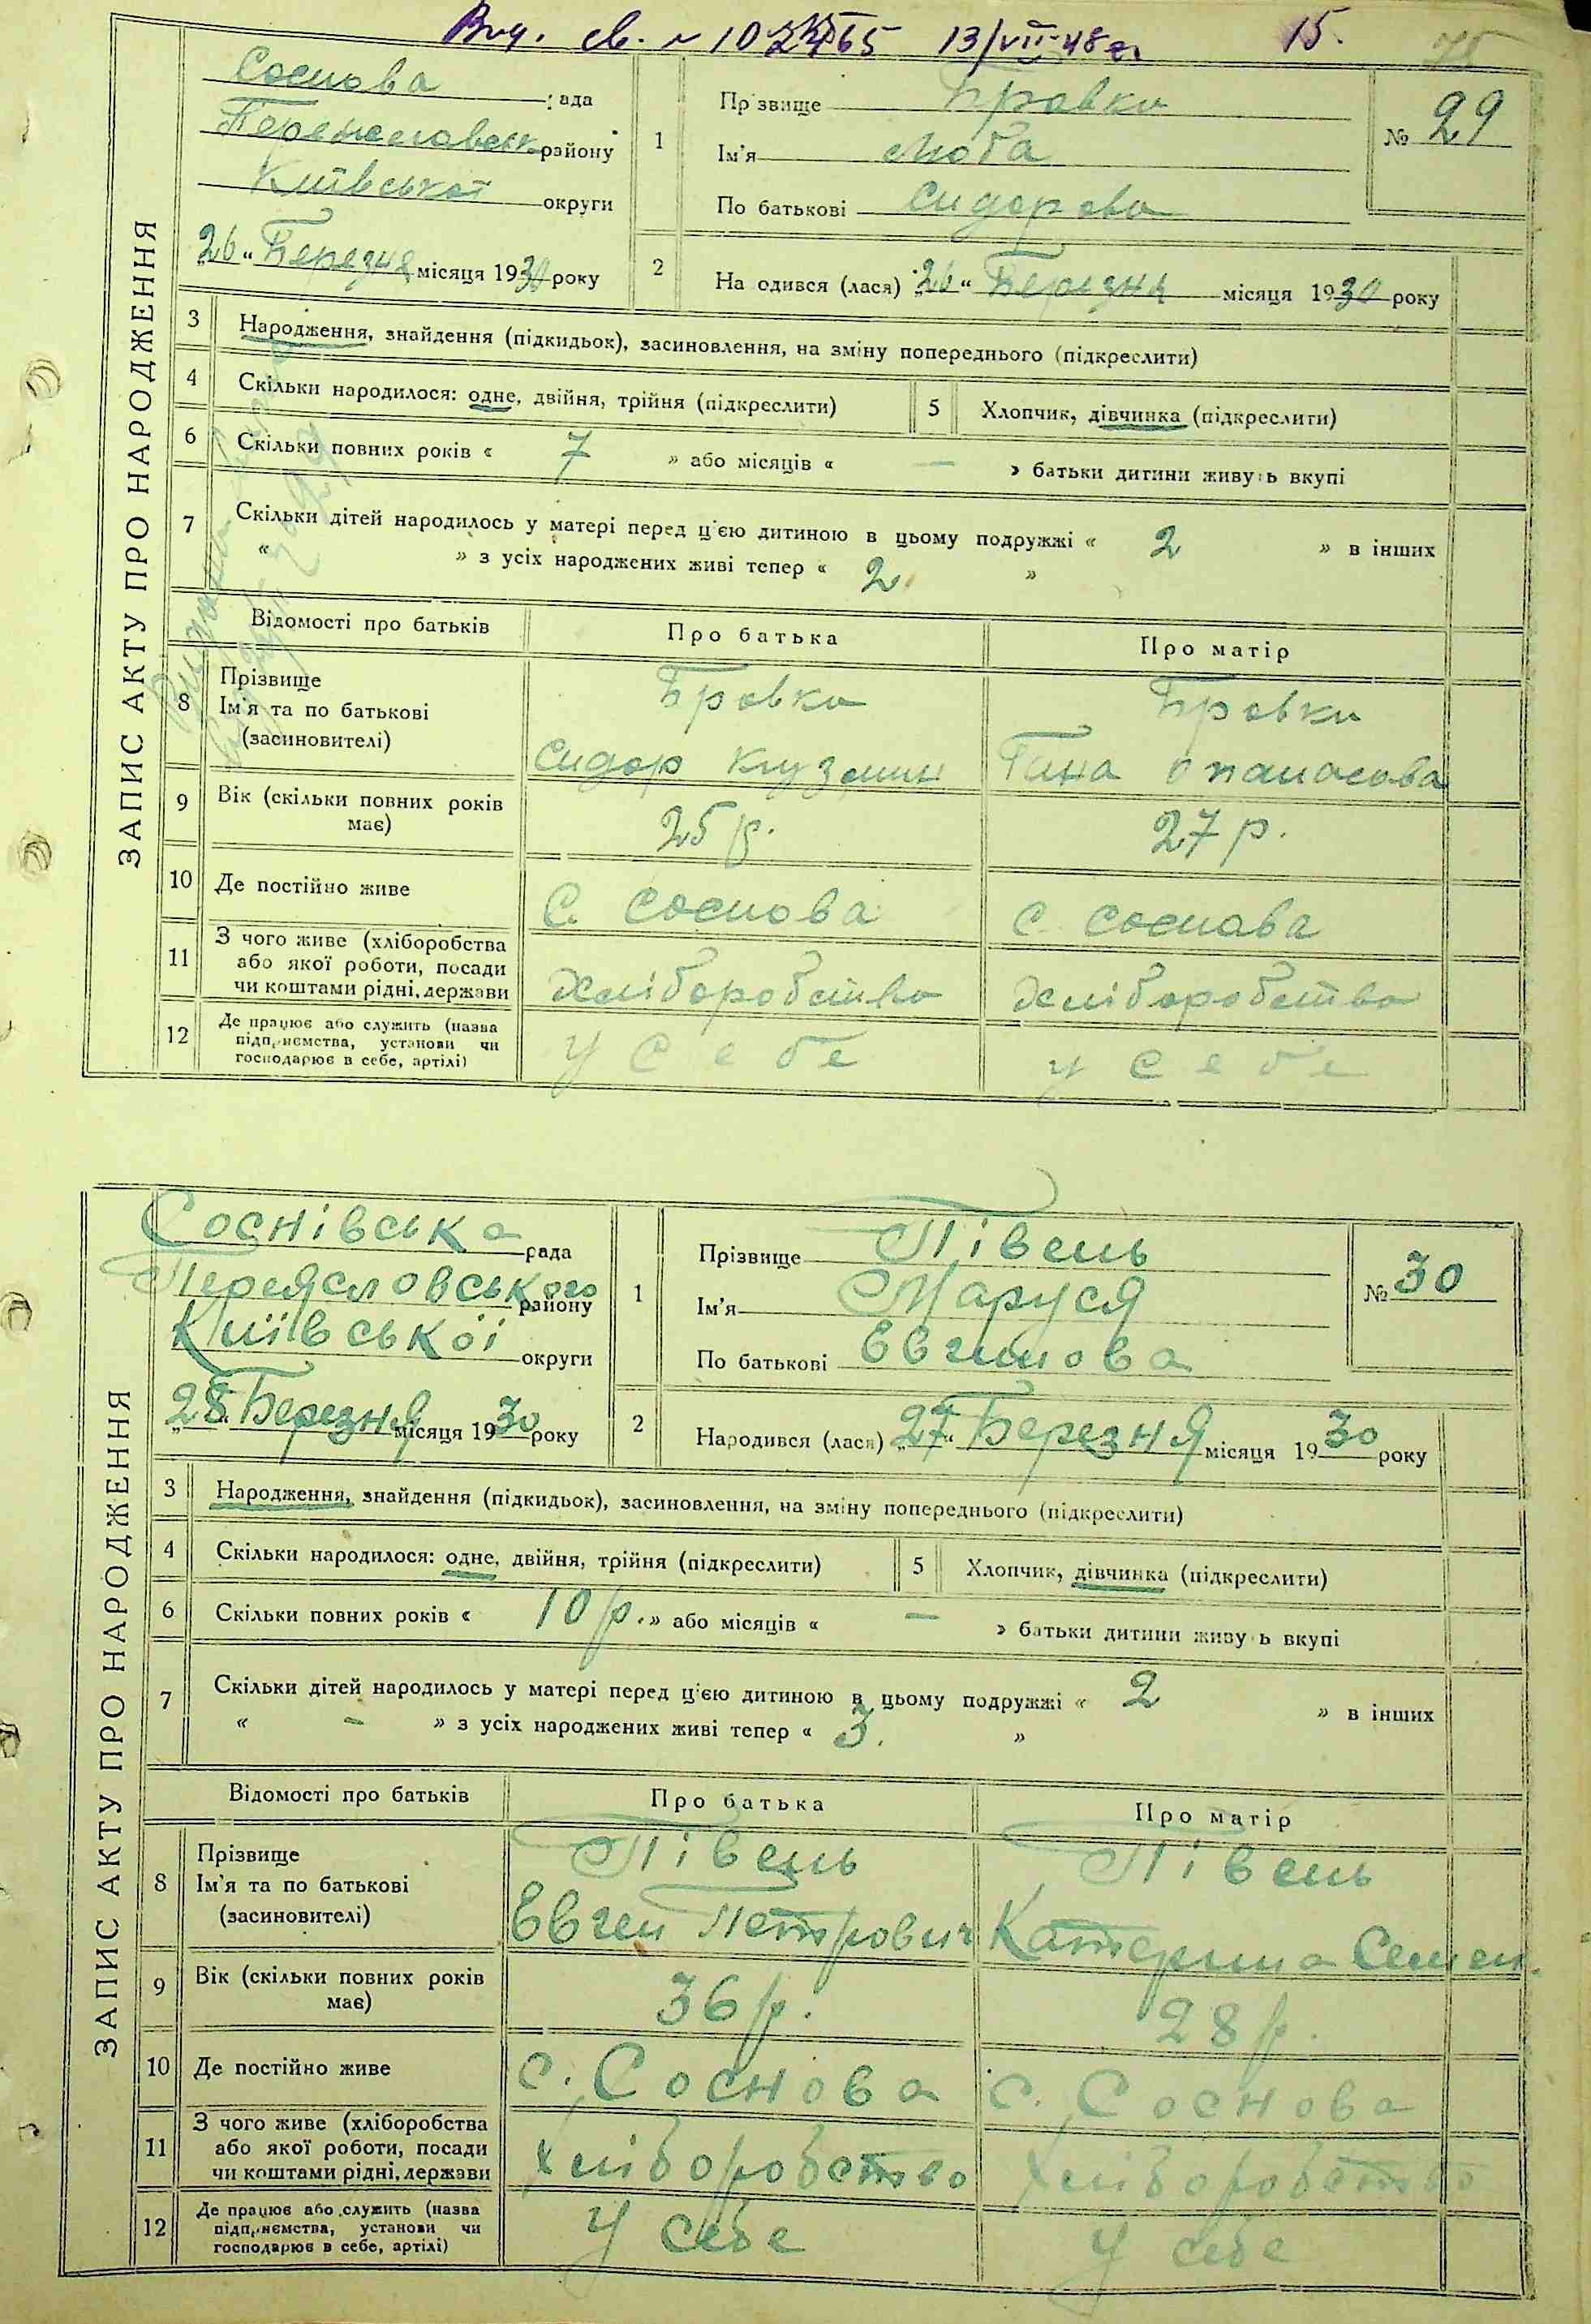 Вид. св. № 13/VII-48 г. 15. 75
ЗАПИС АКТУ ПРО НАРОДЖЕННЯ
Соснова рада
Переяславськ району
Київської округи
„26“ Березня місяця 1930 року
1
Прізвище Бровко
Ім'я Люба
По батькові Сидорова
№ 29
2
На одився (лася) „26“ Березня місяця 1930 року
3 Народження, знайдення (підкидьок), засиновлення, на зміну попереднього (підкреслити)
4 Скільки народилося: одне, двійня, трійня (підкреслити) 5 Хлопчик, дівчинка (підкреслити)
6 Скільки повних років « 7 » або місяців « — » батьки дитини живуть вкупі
7 Скільки дітей народилось у матері перед ц'єю дитиною в цьому подружжі « 2 » в інших
« » з усіх народжених живі тепер « 2. »
Відомості про батьків Про батька Про матір
8 Прізвище
Ім'я та по батькові
(засиновителі)
Бровко
Сидор Кузмин
Бровко
Гана Опанасова
9 Вік (скільки повних років
має)
25 р. 27 р.
10 Де постійно живе С. Соснова С. Соснова
11 З чого живе (хліборобства
або якої роботи, посади
чи коштами рідні, держави
Хліборобство Хліборобство
12 Де працює або служить (назва
підприємства, установи чи
господарює в себе, артілі)
У себе У себе
ЗАПИС АКТУ ПРО НАРОДЖЕННЯ
Соснівська рада
Переясловського району
Київської округи
„28“ Березня місяця 1930 року
1
Прізвище Півень
Ім'я Маруся
По батькові Евгинова
№ 30
2
Народився (лася) „27“ Березня місяця 1930 року
3 Народження, знайдення (підкидьок), засиновлення, на зміну попереднього (підкреслити)
4 Скільки народилося: одне, двійня, трійня (підкреслити) 5 Хлопчик, дівчинка (підкреслити)
6 Скільки повних років « 10 р. » або місяців « — » батьки дитини живу ь вкупі
7 Скільки дітей народилось у матері перед ц'єю дитиною в цьому подружжі « 2 » в інших
« – » з усіх народжених живі тепер « 3. »
Відомості про батьків Про батька Про матір
8 Прізвище
Ім'я та по батькові
(засиновителі)
Півень
Евген Петрович
Півень
Катерина Семен.
9 Вік (скільки повних років
має)
36 р. 28 р.
10 Де постійно живе с. Соснова с. Соснова
11 З чого живе (хліборобства
або якої роботи, посади
чи коштами рідні, держави
Хліборобство Хліборобство
12 Де працює або служить (назва
підприємства, установи чи
господарює в себе, артілі)
У себе У себе